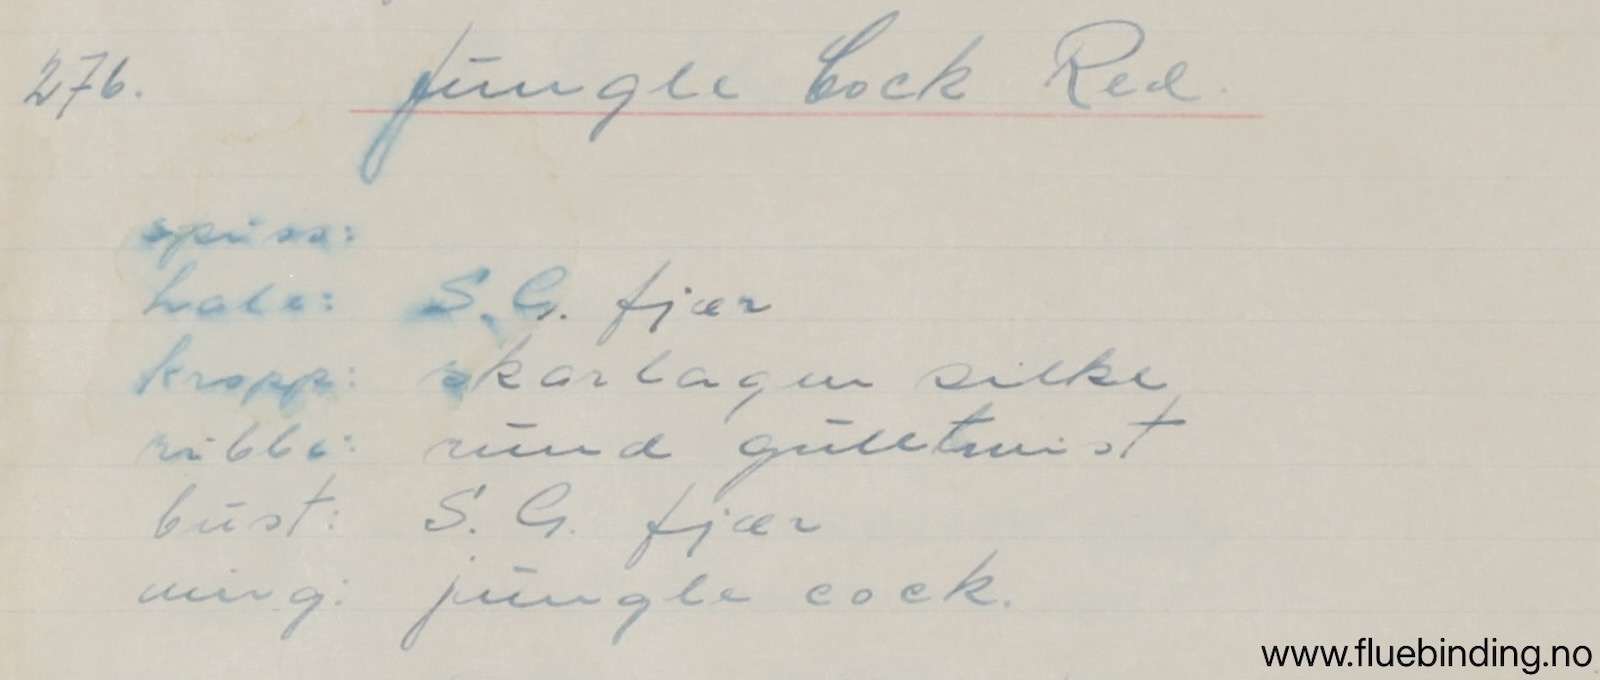 276. Jungle Cock Red.
spiss:
hale: S.G. fjær
kropp: skarlagen silke
ribbe: rund gulltwist
bust: S.G. fjær
wing: jungle cock.
www.fluebinding.no